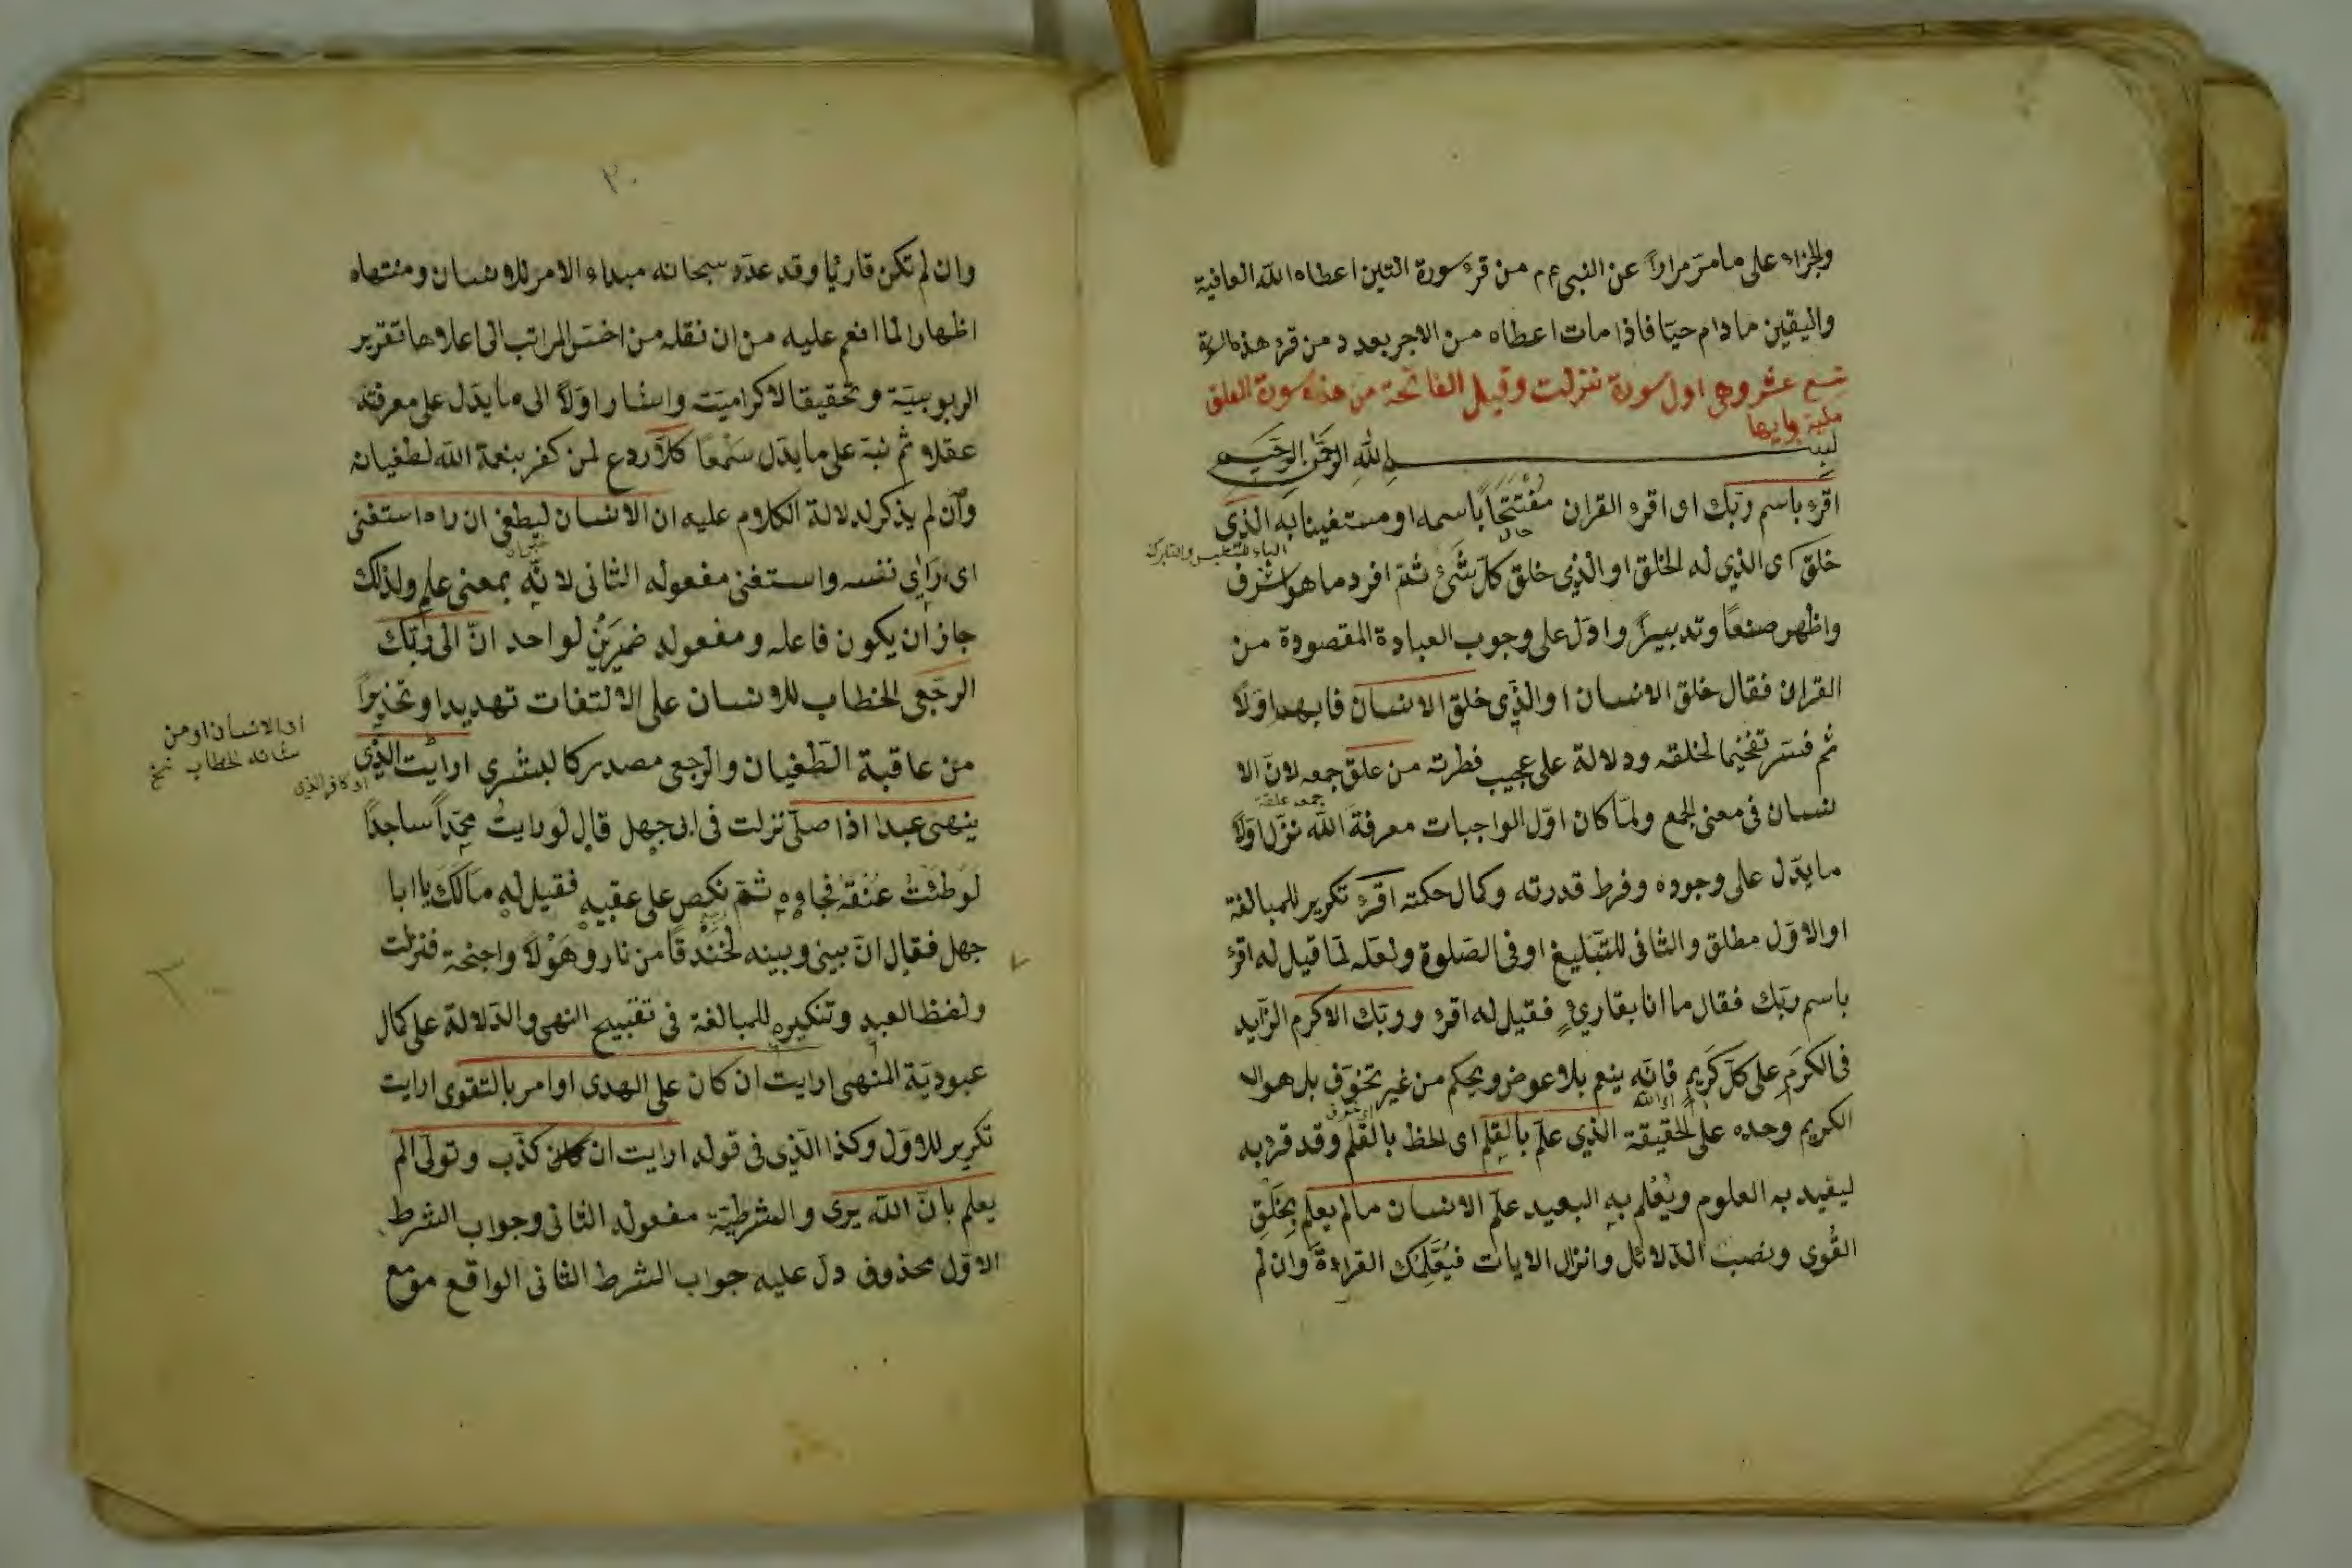 والجزاء على ما مرّ مراراً عن النبى عم من قرء سورة التين اعطاه الله العافية
واليقين ما دام حيّا فاذا مات اعطاه من الاجر بعدد من قرء هذه السورة
سورة العلق
مكية وايها
تسع عشر وهى اول سورة نزلت وقيل الفاتحة من هذه
بسم الله الرحمن الرحيم
اقرء باسم ربّك اى اقرء القران مُفْتَتِحًا باسمه او مستعينا به الذى
حال
خلق اى الذي له الخلق او الذى خلق كلّ شَئ ثمّ افرد ما هو اشرف
واظهر صنعاً وتدبيراً وادلّ على وجوب العبادة المقصودة من
القران فقال خلق الانسان او الذى خلق الانسان فابهم اوّلاً
ثم فسّر تفخيما لخلقه ودلالة على عجيب فطرته من علق جمعه لانّ الا
جمع علقة
نسان فى معنى الجمع ولمّا كان اوّل الواجبات معرفة الله نزّل اوّلاً
ما يدّل على وجوده وفرط قدرته وكمال حكمته اقرء تكرير للمبالغة
او الاوّل مطلق والثانى للتّبليغ او فى الصّلوة ولعله لمّا قيل له اقرء
باسم ربّك فقال ما انا بقارئٍ فقيل له اقرء وربّك الاكرم الزّايد
فى الكرَمِ على كلّ كَرِيمٍ فانّه ينعم بلا عوض ويحكم من غير تخوّف بل هو ال
اى الله
الكريم وحده على الحقيقة الذي علّم بالقلم اى الخط بالقلم وقد قرء به
ليفيد به العلوم ويُعْلم به البعيد علّم الانسان ما لم يعلم بِخَلْقِ
القُوى ونصب الدّلائل وانزال الايات فيُعَلِّمك القراءة وان لم
٣٠
وان لم تكن قارئيا وقد عدّد سبحانه مبداء الامر للانسان ومنتهاه
اظهارا لما انعم عليه من ان نقله من اخسّ المراتب الى اعلاها تقرير
الربوبيّة وتحقيقا لاكراميّته واشار اوّلاً الى ما يدّل على معرفته
عقلا ثم نبّه على ما يدّل سَمْعًا كلّا ردع لمن كفر بنعمة الله لطغيانه
وان لم يذكر لدلالة الكلام عليه ان الانسان ليطغى ان راه استغنى
اى رَاٰى نفسه واستغنى مفعوله الثانى لانّه بمعنى علم ولذلك
جاز ان يكون فاعله ومفعوله ضميرَيْنِ لواحد انّ الى ربّك
الرجعى الخطاب للانسان على الالتفات تهديدا وتحذيراً
من عاقبة الطّغيان والرجعى مصدر كالبشرى ارايت الّذى
اى الانسان او من
شانه الخطاب نسخ
ينهى عبدا اذا صلّى نزلت فى ابى جهل قال لو رايتُ محمّداً ساجداً
لَوَطئتُ عُنُقَهُ فجاءه ثمّ نكص على عقبيه فقيل له مالَكَ يا ابا
جهل فقال انّ بينى وبينه لَخَنْدقًا من نار وهَوْلاً واجنحة فنزلت
ولفظ العبد وتنكيره للمبالغة فى تقبيح النهى والدّلالة على كمال
عبوديّة المنهى ارايت ان كان على الهدى او امر بالتقوى ارايت
تكرير للاوّل وكذا الّذى فى قوله ارايت ان كذّب وتولّى الم
يعلم بانّ الله يرى والشرطيّة مفعوله الثانى وجواب الشرط
الاوّل محذوف دلّ عليه جواب الشرط الثانى الواقع موقع